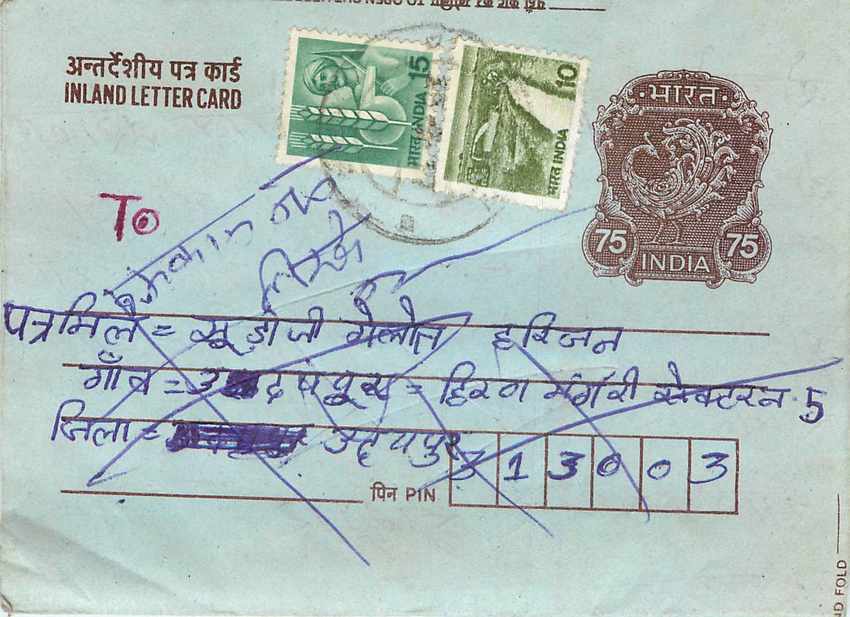 TO OPEN
अन्तर्देशीय पत्र कार्ड
INLAND LETTER CARD
भारत INDIA 15
भारत INDIA 10
भारत
75 75
INDIA
To
मकान नं०
लिखें
पत्र मिले = गेलोत हरिजन
गाँव = उदयपुर = हिरण मंगरी सेक्टर न. 5
जिला = उदयपुर
पिन PIN 313003
ND FOLD